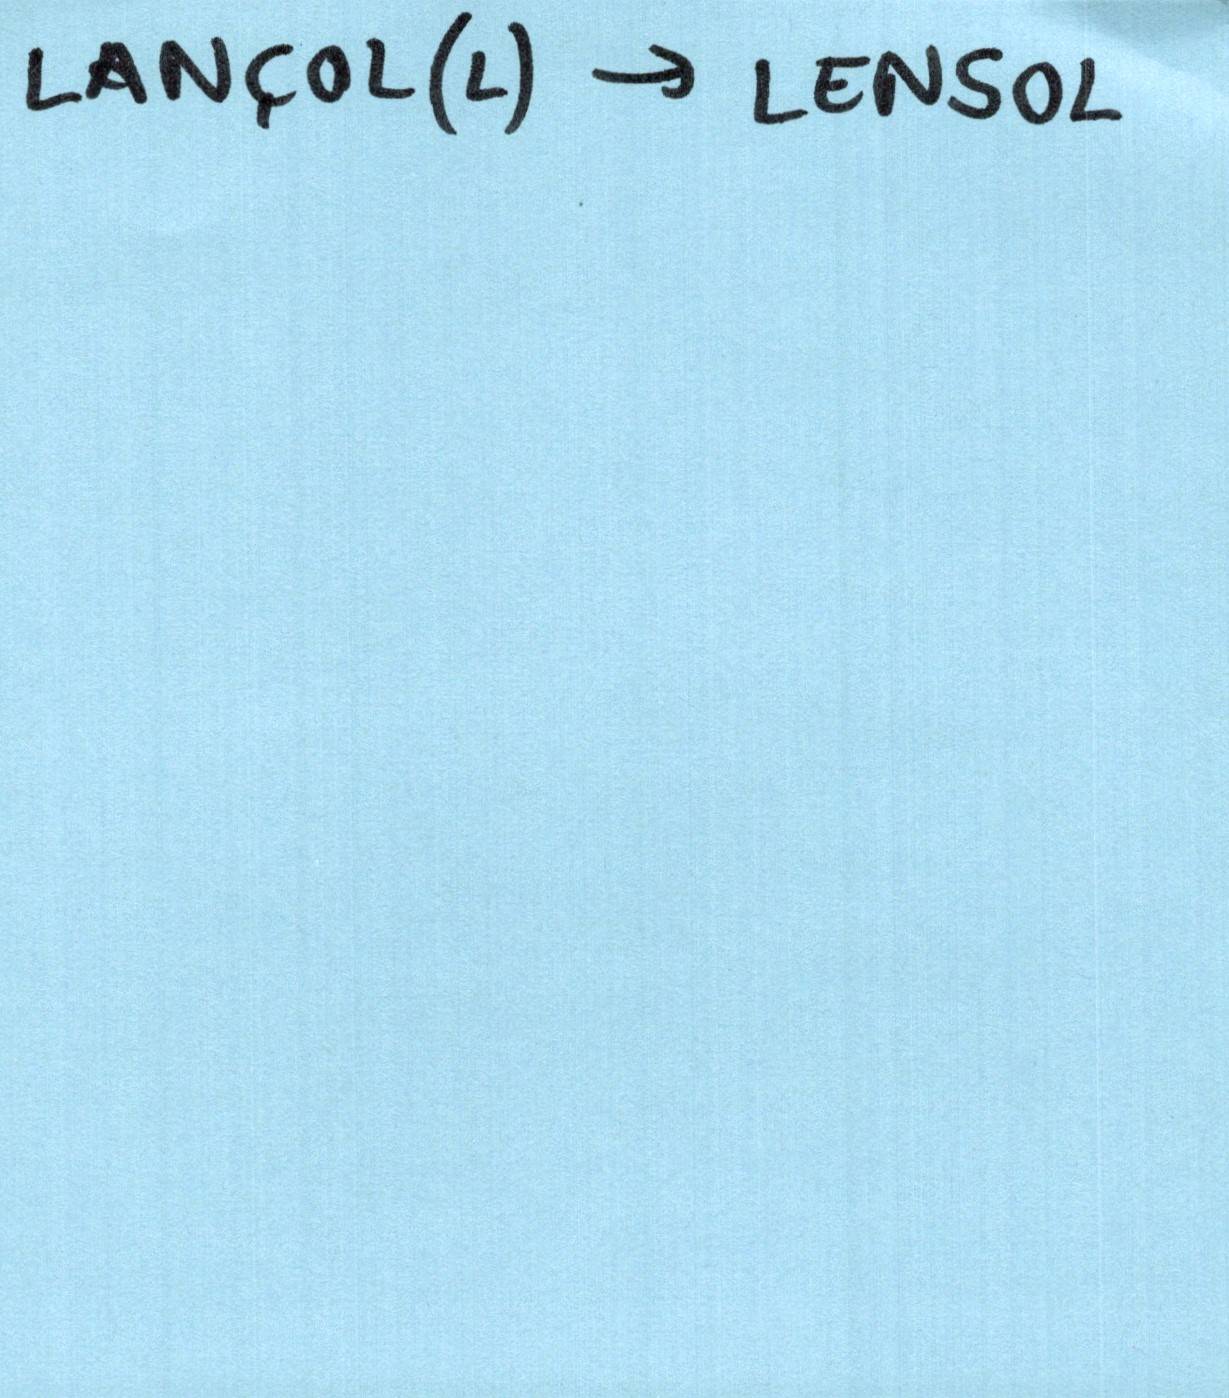 LANÇOL(L) → LENSOL